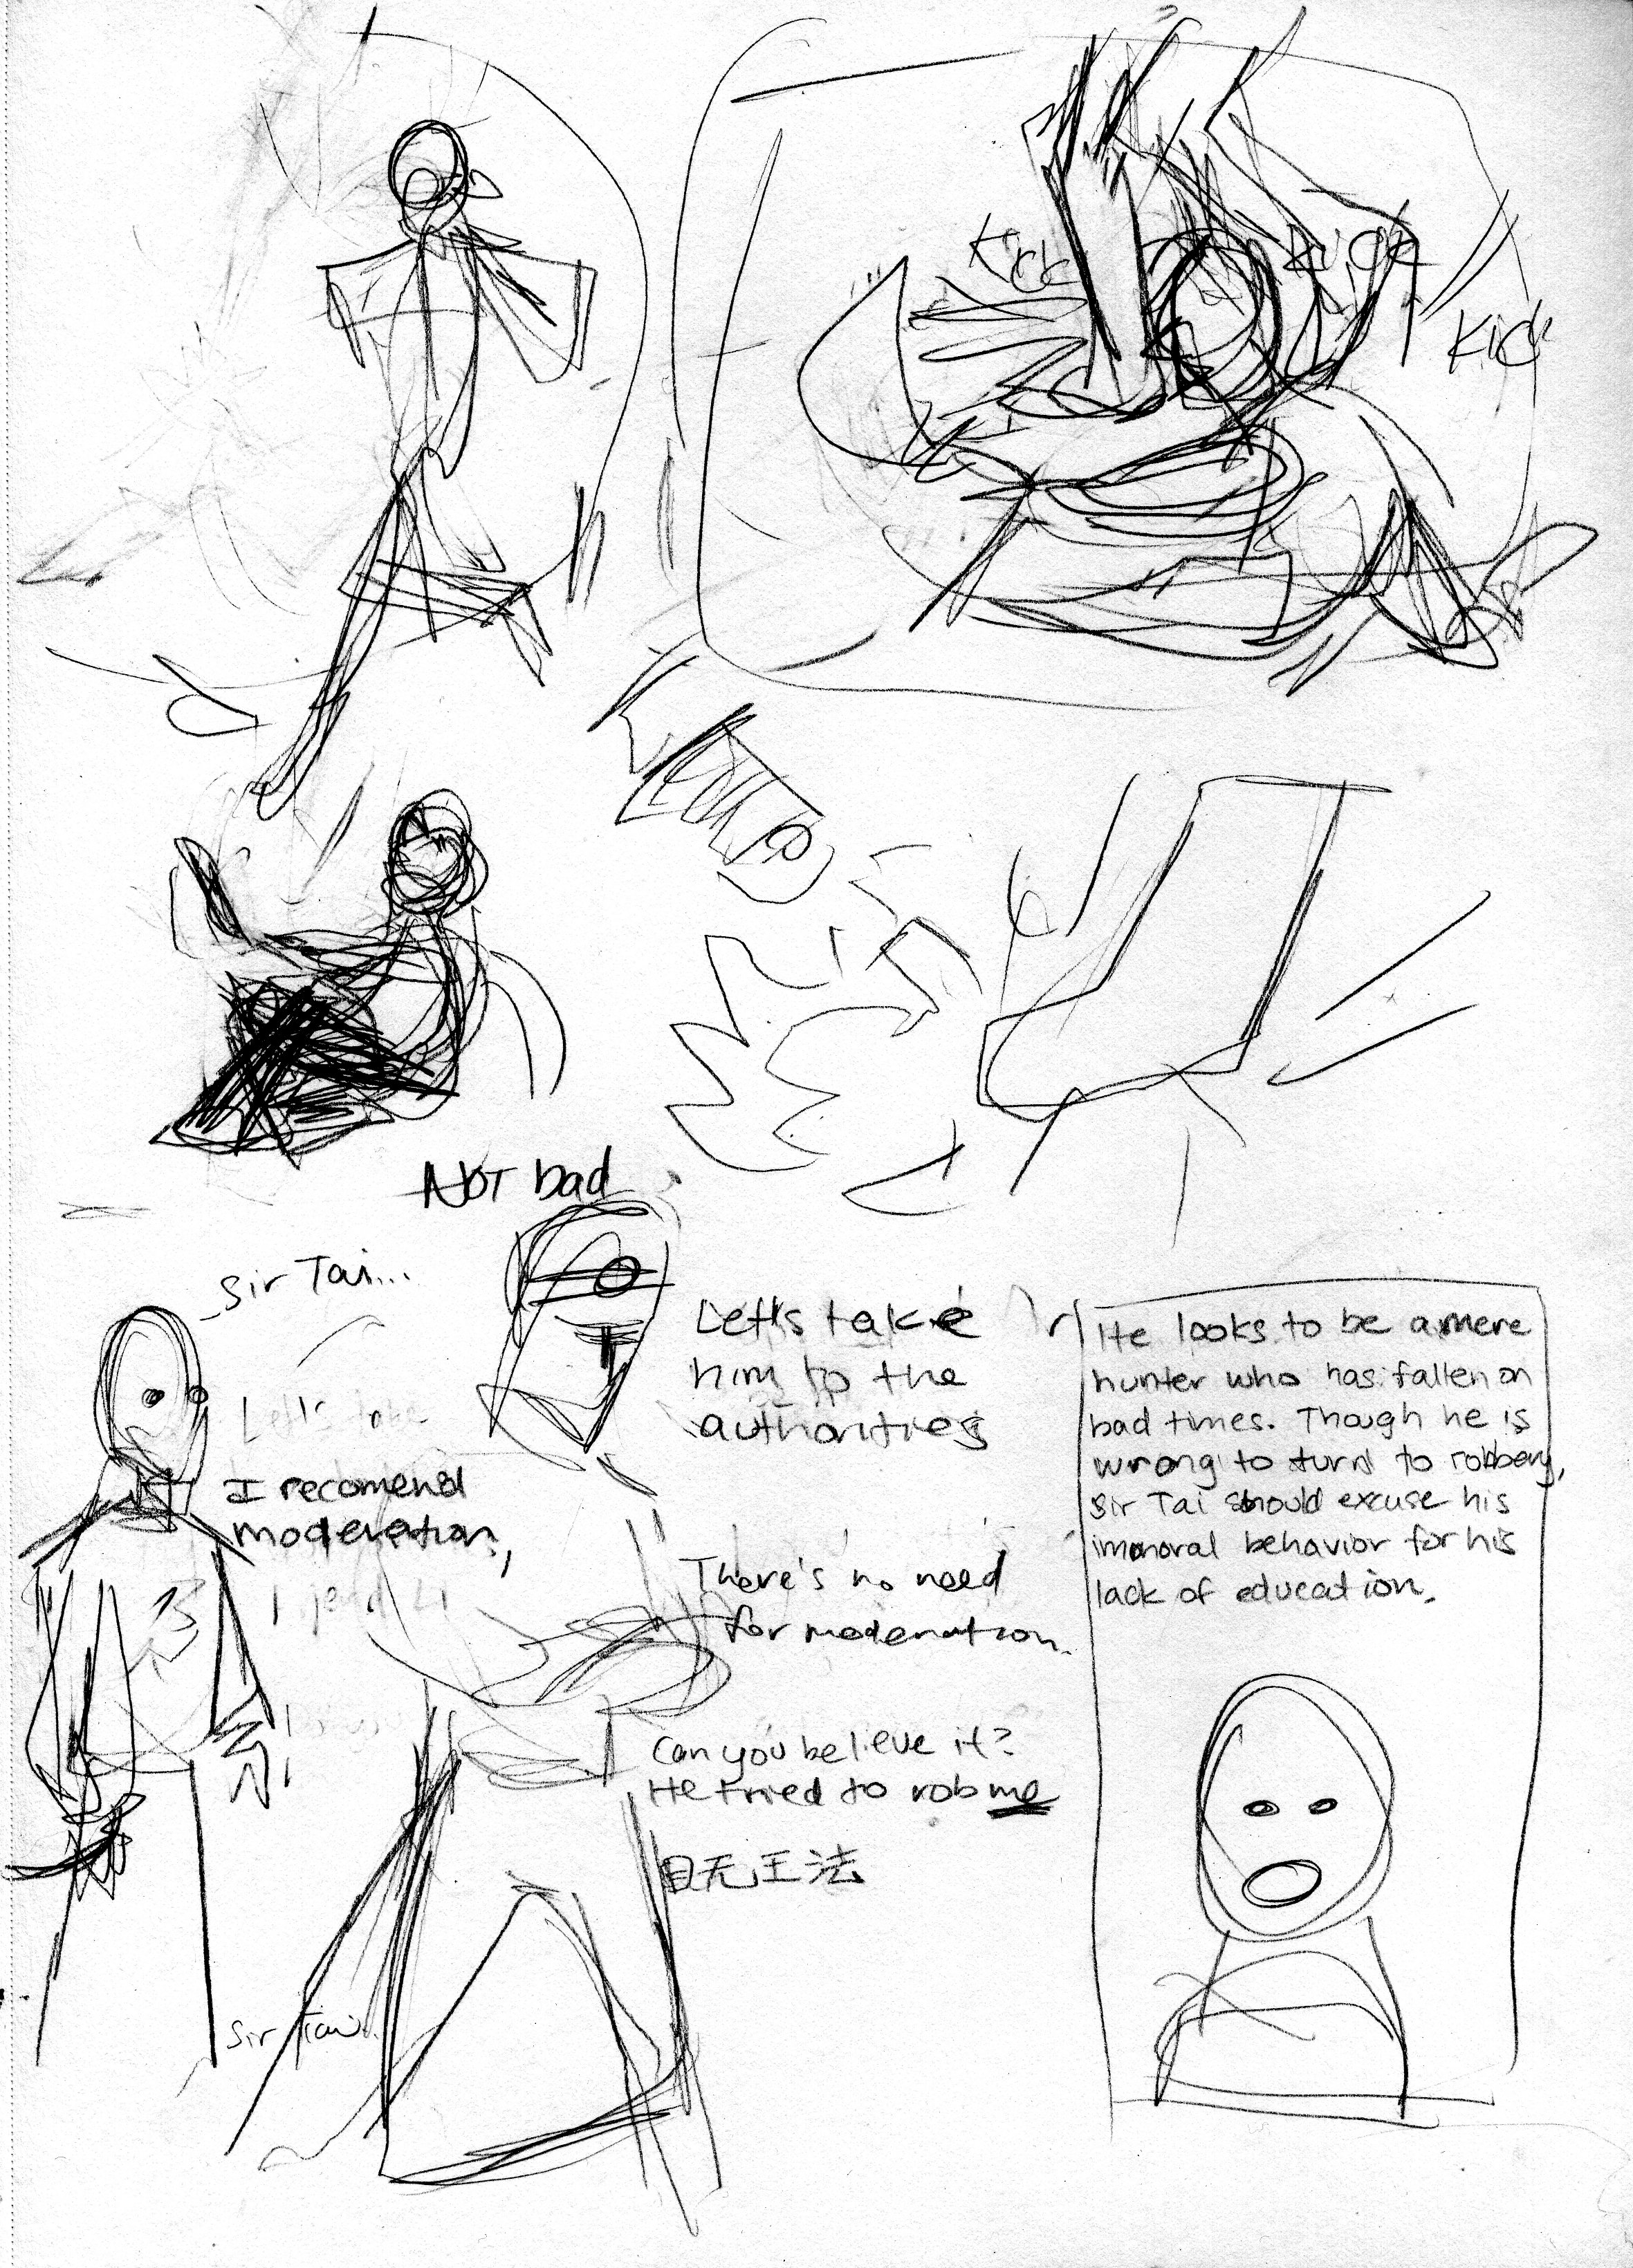 Kick
Kick
Kick
NOT bad
Sir Tai...
Let's take
him to the
authorities
He looks to be a mere
hunter who has fallen on
bad times. Though he is
wrong to turn to robbery,
Sir Tai should excuse his
immoral behavior for his
lack of education.
Let's take
I recomend
moderation,
There's no need
for moderation.
Can you believe it?
He tried to rob me
目无王法
Sir Tai...